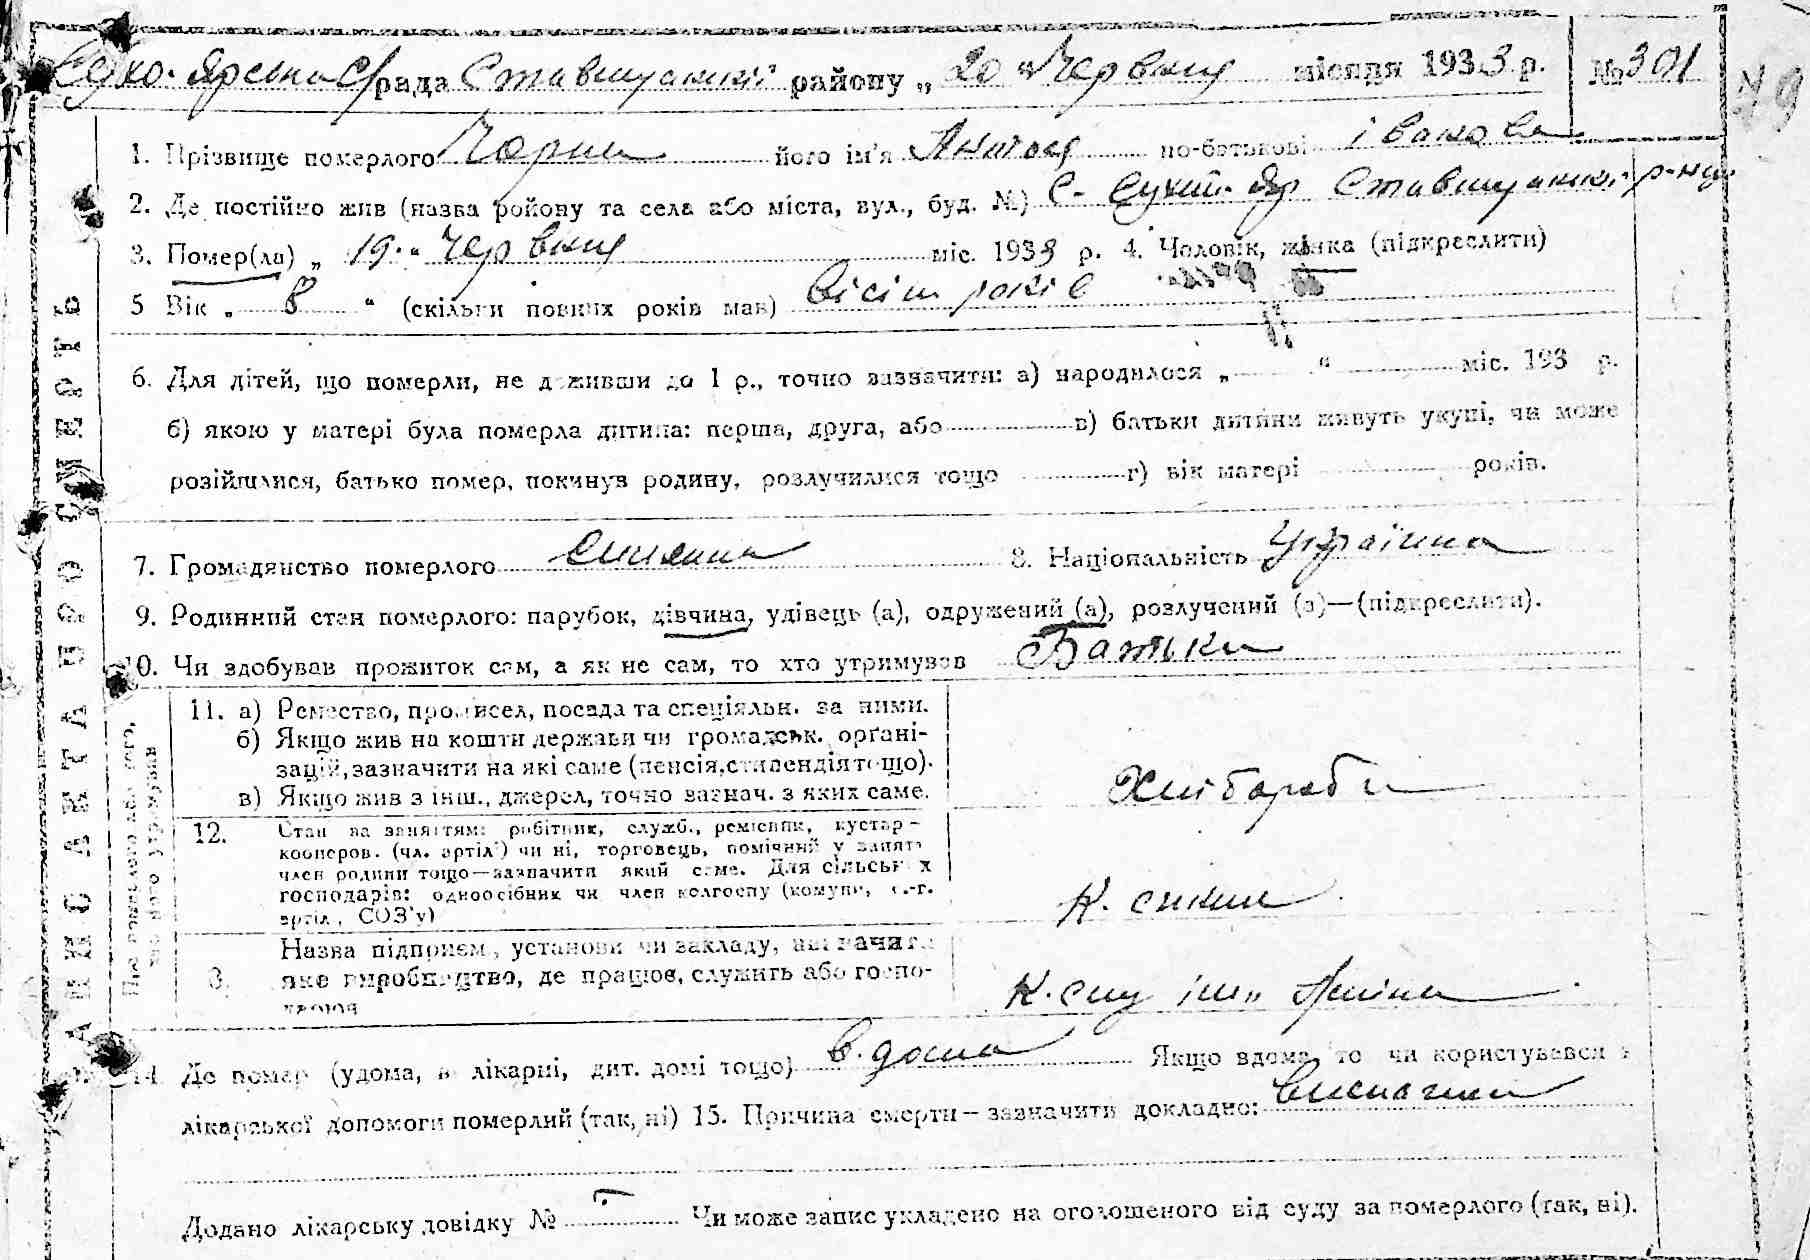 Сухо-Ярська с/рада Ставищанськ. району „20“ Червня місяця 1933 р. № 301
79
АНКЕТА ПРО СМЕРТЬ
1. Прізвище померлого Чорна його ім'я по-батькові Іванова
2. Де постійно жив (назва району та села або міста, вул., буд. №) с. Сухий-Яр Ставищанськ. р-ну
3. Помер(ла) „19“ Червня міс. 1933 р. 4. Чоловік, жінка (підкреслити)
5 Вік „8“ (скільки повних років мав) вісім років
6. Для дітей, що померли, не доживши до 1 р., точно зазначити: а) народилося „ “ міс. 193 р.
б) якою у матері була померла дитина: перша, друга, або в) батьки дитини живуть укупі, чи може
розійшлися, батько помер, покинув родину, розлучилися тощо г) вік матері років.
7. Громадянство померлого 8. Національність Українка
9. Родинний стан померлого: парубок, дівчина, удівець (а), одружений (а), розлучений (а)—(підкреслити).
10. Чи здобував прожиток сам, а як не сам, то хто утримував Батьки
11. а) Ремество, промисел, посада та спеціяльн. за ними.
б) Якщо жив на кошти держави чи громадськ. органі-
зацій, зазначити на які саме (пенсія, стипендія тощо).
в) Якщо жив з інш., джерел, точно зазнач. з яких саме.
Хліборби
12. Стан за заняттям: робітник, служб., ремісник, кустар-
кооперов. (чл. артіл.) чи ні, торговець, помічний у занят.
член родини тощо—зазначити який саме. Для сільських
господарів: одноосібник чи член колгоспу (комуни, с.-г.
артіл., СОЗ'у)
Назва підприєм., установи чи закладу, визначити
яке виробництво, де працює, служить або госпо-
дарює
К. спу ім. Леніна
14. Де помер (удома, в лікарні, дит. домі тощо) в дома Якщо вдома, то чи користувався з
лікарської допомоги померлий (так, ні) 15. Причина смерти – зазначити докладно:
Додано лікарську довідку № Чи може запис укладено на оголошеного від суду за померлого (так, ні).